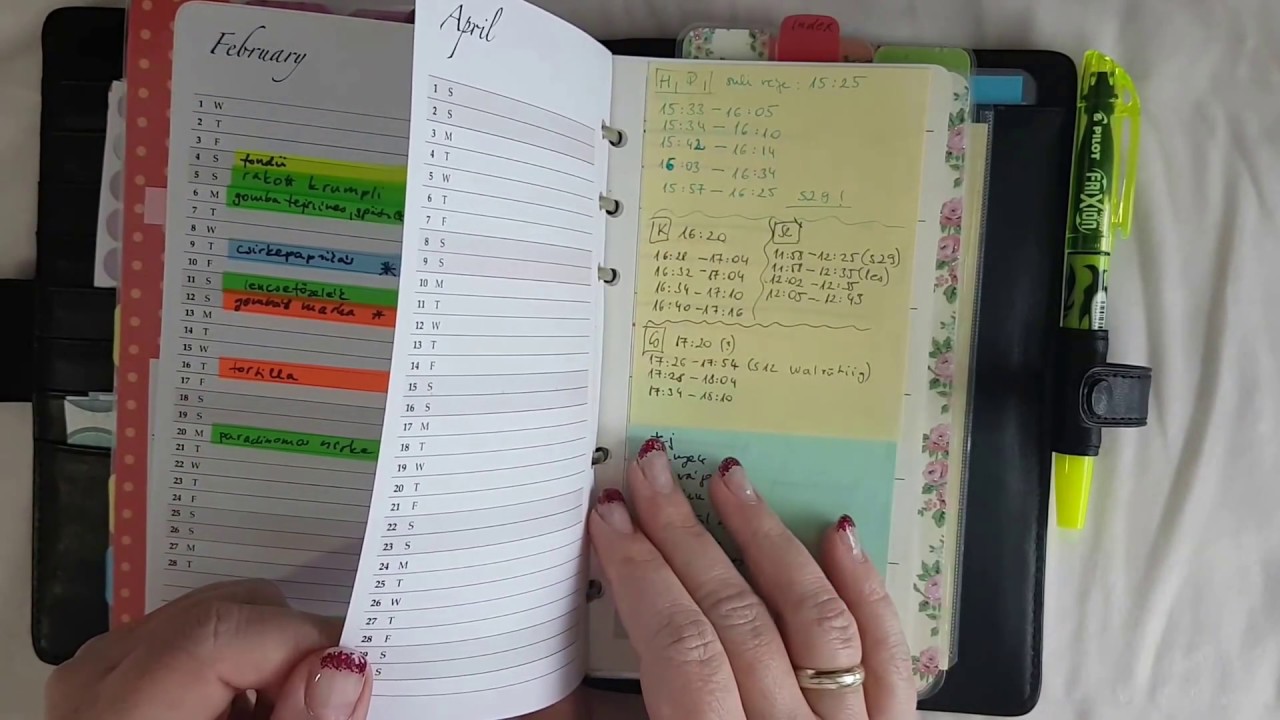 February
1 W
2 T
3 F
4 S fondü
5 S rakott krumpli
6 M gomba tejszínes, spárga
7 T
8 W
9 T csirkepaprikás *
10 F
11 S lencsefőzelék
12 S gombás marha *
13 M
14 T
15 W
16 T tortilla
17 F
18 S
19 S
20 M
21 T
22 W
23 T
24 F
25 S
26 S
27 M
28 T
April
1 S
2 S
3 M
4 T
5 W
6 T
7 F
8 S
9 S
10 M
11 T
12 W
13 T
14 F
15 S
16 S
17 M
18 T
19 W
20 T
21 F
22 S
23 S
24 M
25 T
26 W
27 T
28 F
S
S
Index
H, P, suli vége: 15:25
15:33 – 16:05
15:34 – 16:10
15:42 – 16:14
16:03 – 16:34
15:57 – 16:25 S29!
K 16:20
16:28 – 17:04
16:32 – 17:04
16:34 – 17:10
16:40 – 17:16
11:58 – 12:25 (S29)
11:58 – 12:35
12:02 – 12:35
12:05 – 12:43
17:20 (?)
17:26 – 17:54
17:28 – 18:04
17:34 – 18:10
PILOT
FRIXION